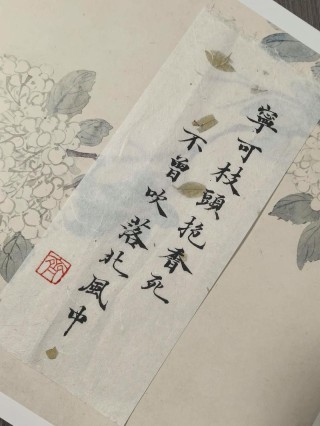 寧可枝頭抱香死
不曾吹落北風中